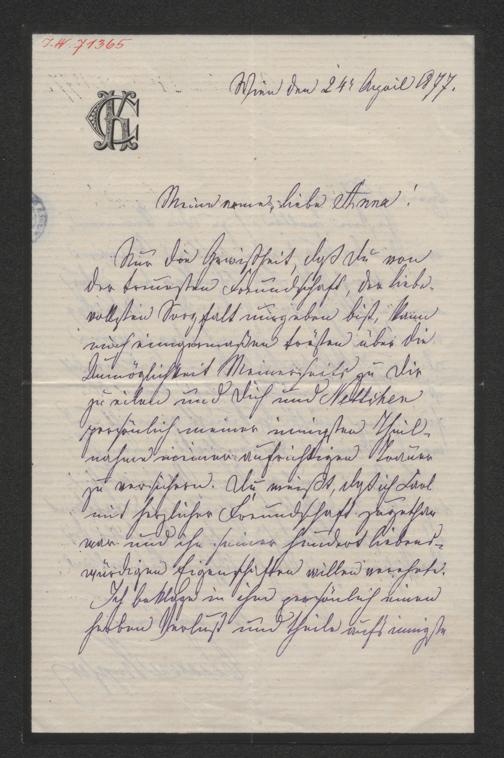 J.N. 71365
Wien den 24t April 1877.
Meine arme, liebe Anna!
Nur die Gewißheit, daß Du von
der treuesten Freundschaft, der liebe-
vollsten Sorgfalt umgeben bist, kann
mich einigermaßen trösten über die
Unmöglichkeit Meinerseits zu Dir
zu eilen und Dich und Nettchen
persönlich meiner innigsten Theil-
nahme meiner aufrichtigen Trauer
zu versichern. Du weißt, daß ich Carl
mit herzlicher Freundschaft zugethan
war und ihn seiner hundert liebens-
würdigen Eigenschaften willen verehrte.
Ich beklage in ihm persönlich einen
herben Verlust und theile aufs innigste